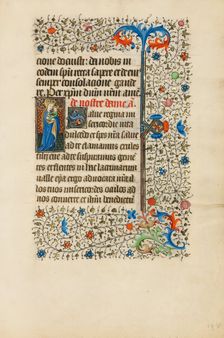 cione docuisti: da nobis in
eodem spū recta sapere et de eiꝰ
semper consolacione gaude
re. Per xpm dnm nrm̄ amē
de nostre dame a
alue regina mi
sericordie vita
dulcedo et spes nr̄a salue
ad te clamamus exules
filii eue ad te suspiramus geme
tes et flentes in hac lacrimarum
ualle eya ergo aduocata nr̄a
illos tuos misericordes oculos ad
nos conuerte et ihm benedictū